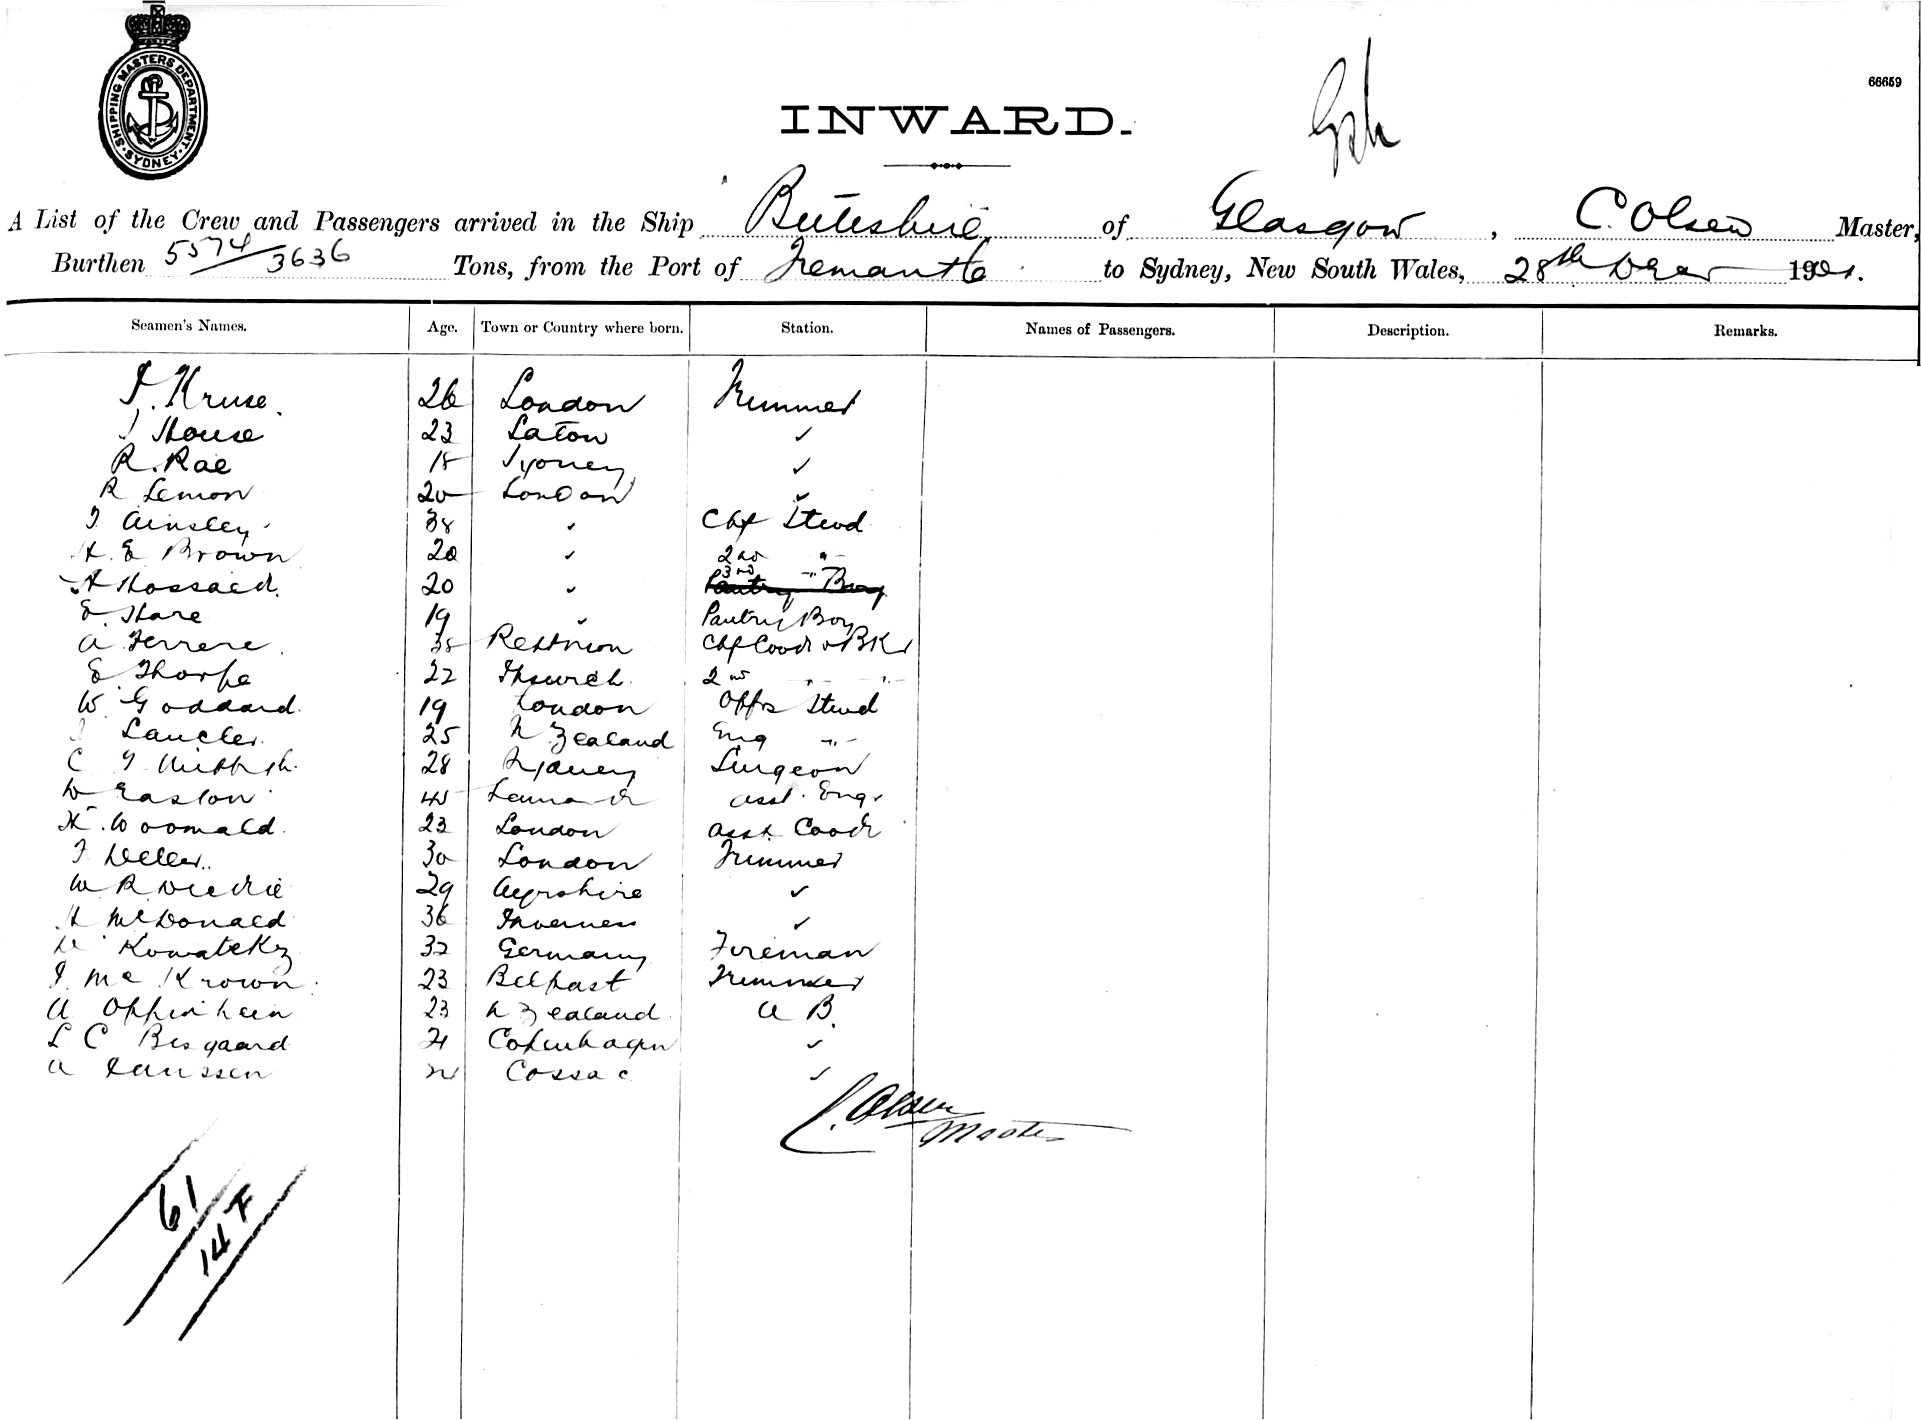 SHIPPING MASTERS DEPARTMENT
SYDNEY
66659
INWARD.
A List of the Crew and Passengers arrived in the Ship Buteshire of Glasgow, C. Olsen Master,
Burthen 5574/3636 Tons, from the Port of Fremantle to Sydney, New South Wales, 28th Decr 1901.
Seamen's Names. Age. Town or Country where born. Station. Names of Passengers. Description. Remarks.
F. Kruse 26 London Trimmer
J House 23 Laton ✓
R. Rae 18 Sydney ✓
R Lemon 20 London ✓
T Ainsley 38 ✓ Chf Stwd
H. E Brown 20 ✓ 2nd "
A Hossack 20 ✓ 3rd "
Pantry Boy
E. Hare 19 ✓ Pantry Boy
A Ferrere 38 Chf Cook & BKr
E Thorpe 22 Ipswich 2nd " "
W Goddard 19 London Offs Stwd
Laucler 25 N Zealand Eng "
C 28 Sydney Surgeon
W Easton 45 asst. Engr
H. Woomald 23 London asst Cook
T Weller 30 London Trimmer
W R Dickie 29 Ayrshire ✓
H McDonald 36 Inverness ✓
Kowatzky 32 Germany Fireman
J. Mc Krown 23 Belfast Trimmer
A Oppenhein 23 N Zealand A B.
L C Bisgaard 21 Copenhagen ✓
A Janssen Cossac ✓
C. Olsen
Master
61
14 F